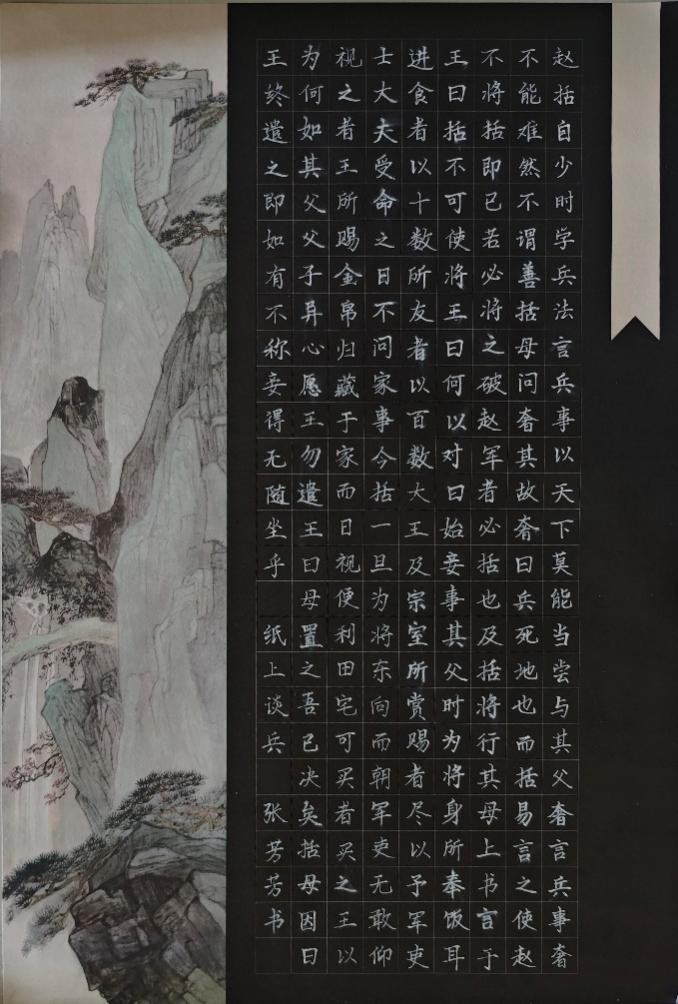 赵括自少时学兵法言兵事以天下莫能当尝与其父奢言兵事奢
不能难然不谓善括母问奢其故奢曰兵死地也而括易言之使赵
不将括即已若必将之破赵军者必括也及括将行其母上书言于
王曰括不可使将王曰何以对曰始妾事其父时为将身所奉饭耳
进食者以十数所友者以百数大王及宗室所赏赐者尽以予军吏
士大夫受命之日不问家事今括一旦为将东向而朝军吏无敢仰
视之者王所赐金帛归藏于家而日视便利田宅可买者买之王以
为何如其父父子异心愿王勿遣王曰母置之吾已决矣括母因曰
王终遣之即如有不称妾得无随坐乎 纸上谈兵 张芳芳书